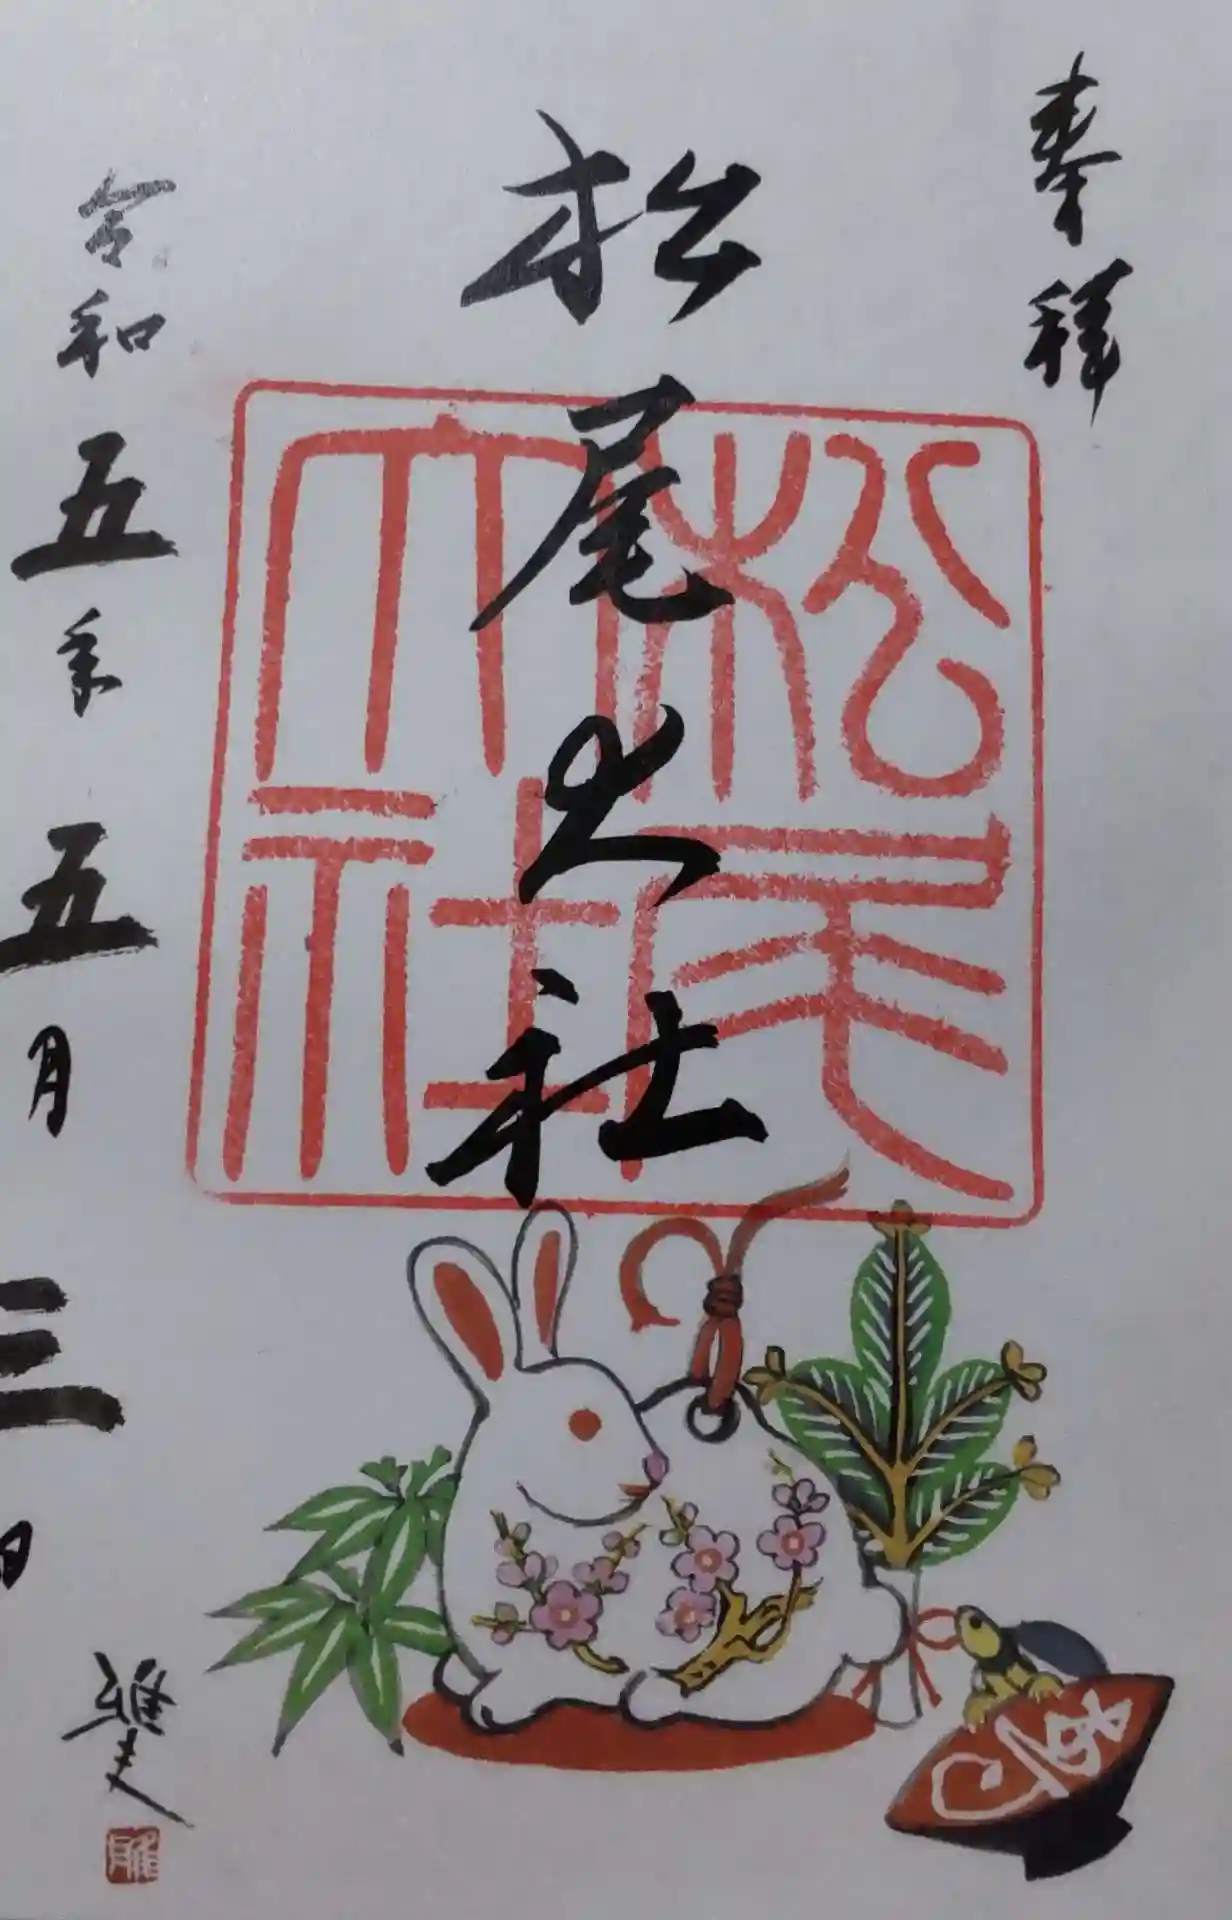 奉拝
松尾大社
松尾大社
令和五年五月三日
雅夫
寿